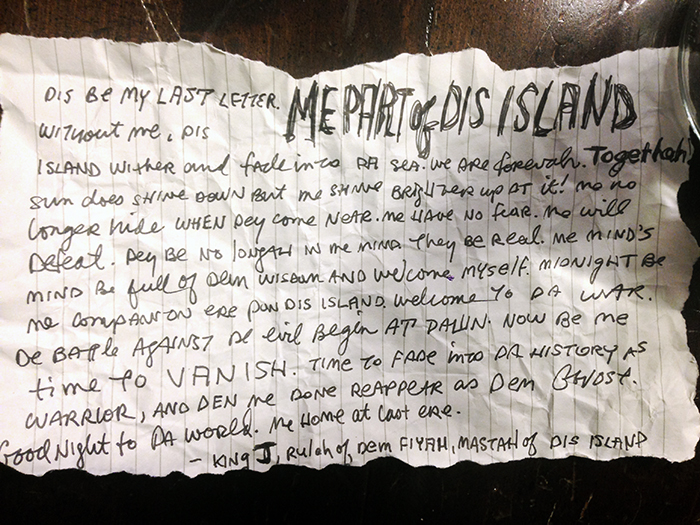 DIS BE MY LAST LETTER. ME PART of DIS ISLAND
WITHOUT me, DIS
ISLAND WITHER and fade into DA SEA. WE ARE forevah. Togethah!
sun does SHINE DOWN BUT me SHINE BRIGHTER up AT it! me no
longer hide WHEN DEY COME NEAR. me HAVE NO FEAR. me will
Defeat. DEY BE NO longah IN me MIND They BE Real. Me MIND'S
MIND BE full of Dem WISDOM AND Welcome myself. MIDNIGHT BE
me COMPANION ERE PON DIS ISLAND. Welcome To DA WAR.
DE BATTLE AGAINST DE evil Begin AT DAWN. NOW BE me
time to VANISH. TIME TO FADE into DA HISTORY AS
WARRIOR, AND DEN me DONE REAPPEAR as Dem GHOST.
Good Night to DA WORLD. Me Home at Last ERE.
- KING J, Rulah of Dem FIYAH, MASTAH of DIS ISLAND